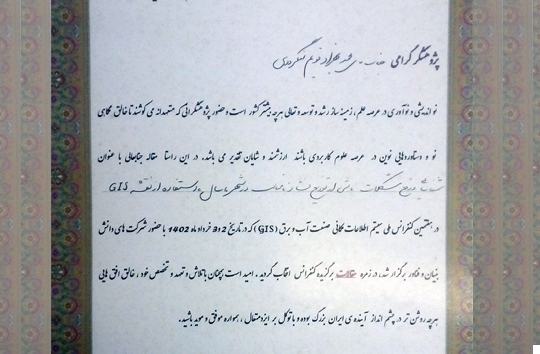 پژوهشگر گرامی
نو اندیشی و نوآوری در عرصه علم، زمینه ساز رشد و توسعه و تعالی هرچه بیشتر کشور است و حضور پژوهشگرانی که متعهدانه می کوشند تا خالق نگاهی
نو و دستاوردهایی نوین در عرصه علوم کاربردی باشند ارزشمند و شایان تقدیر می باشد. در این راستا مقاله جنابعالی با عنوان
شناسایی و رفع مشکلات با استفاده از نقشه GIS
در هفتمین کنفرانس ملی سیستم اطلاعات مکانی صنعت آب و برق (GIS) که در تاریخ 2و3 خرداد ماه 1402 با حضور شرکت های دانش
بنیان و فناور برگزار شد، در زمره مقالات برگزیده کنفرانس انتخاب گردید. امید است همچنان با تلاش و تعهد و تخصص خود، خالق افق هایی
هرچه روشن تر در چشم انداز آینده ی ایران بزرگ بوده و با توکل بر ایزد متعال، همواره موفق و موید باشید.